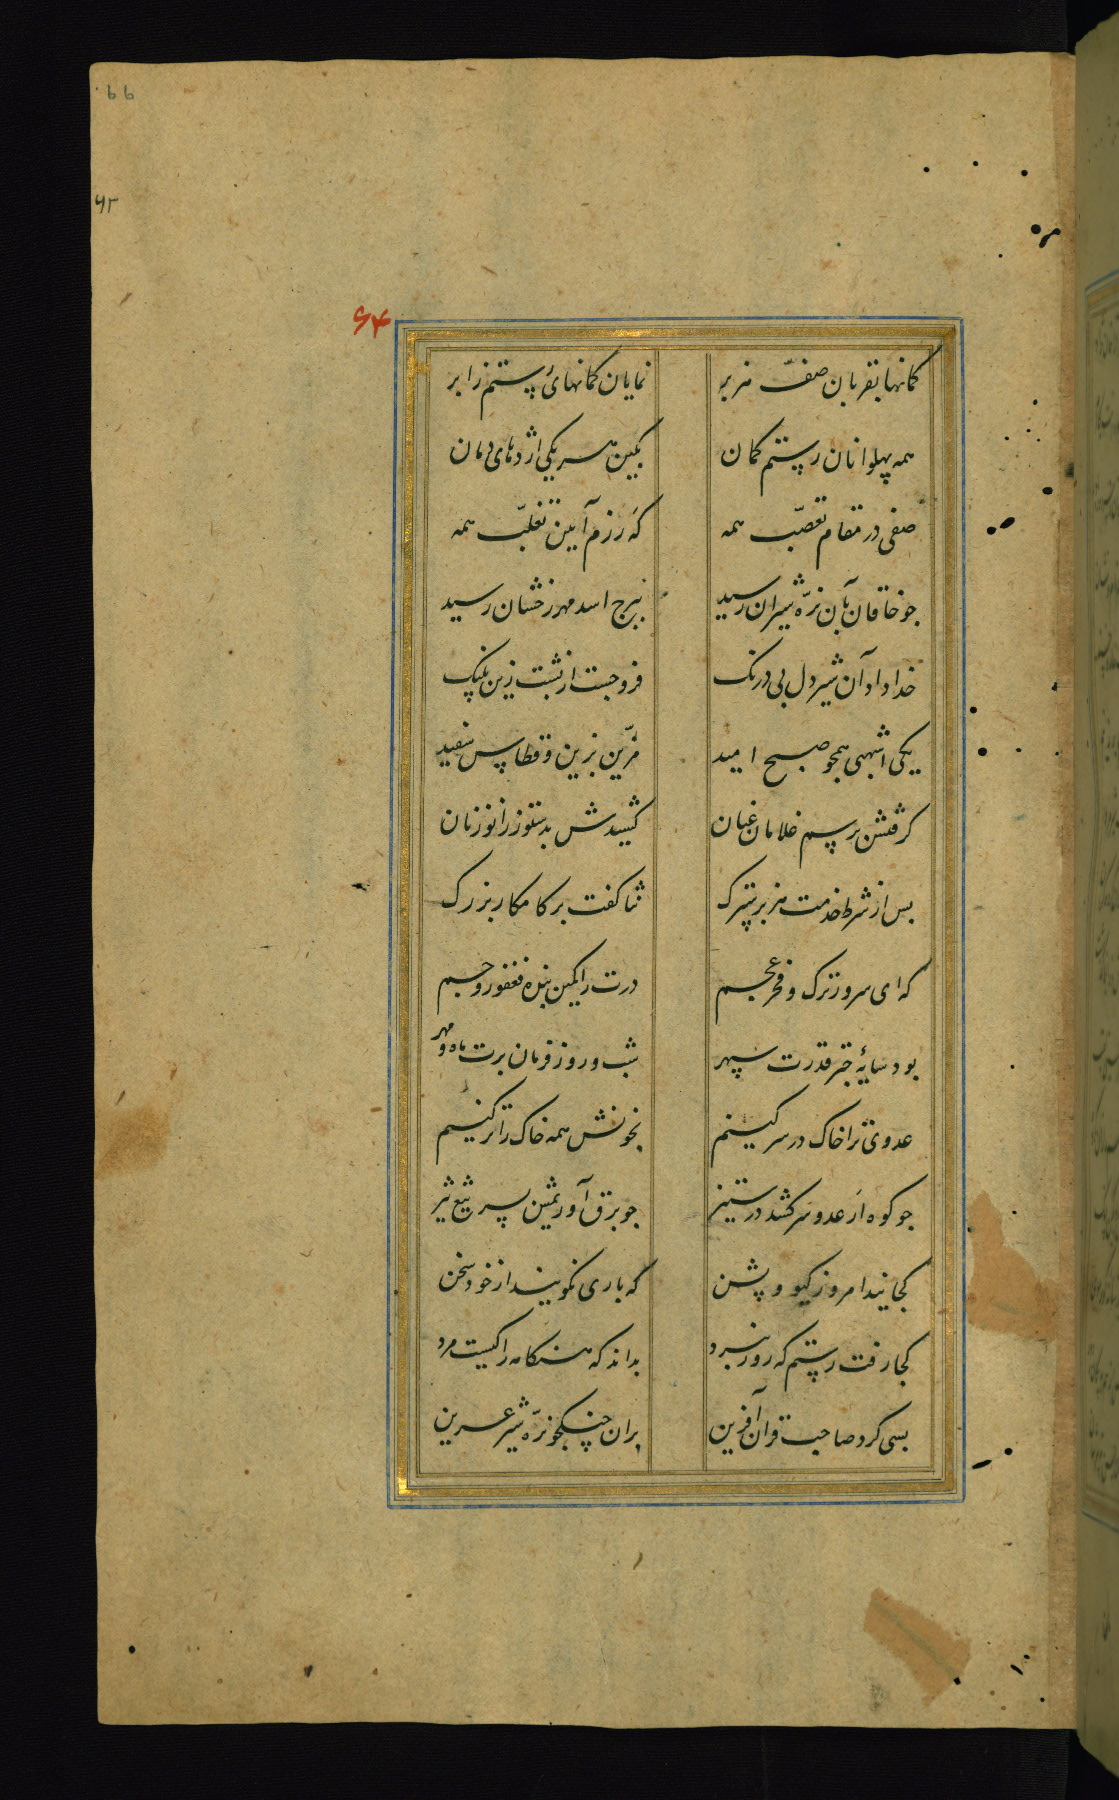 ۶۲
۶۴
کمانها بقربان صف هزبر نمایان کمانهای رستم ز ابر
همه پهلوانان رستم کمان بکین هر یکی اژدهای دمان
صفی در مقام تعصّب همه که رزم آیین تغلّب همه
جو خاقان بآن نرّه شیران رسید ببرج اسد مهر رخشان رسید
خداداد آن شیردل بی درنک فروجست از پشت زین پلنک
یکی اشهبی همجو صبح امید مزّین بزین و قطاس سفید
کرفتش برسم غلامان عنان کشیدش بدستور زانو زنان
بس از شرط خدمت هزبر سترک ثنا کفت بر کامکار بزرک
که ای سرور ترک و فخر عجم درت را کمین بنده فغفور و جم
بود سایهٔ جتر قدرت سپهر شب و روز فرمان برت ماه و مهر
عدوی ترا خاک در سر کنیم بخونش همه خاک را تر کنیم
جو کوه ار عدو سر کشد در ستیز جو برق آوریمش بسر تیغ تیز
کجایند امروز کیو و پشن که باری نکویند از خود سخن
کجا رفت رستم که روز نبرد بداند که هنکامه را کیست مرد
بسی کرد صاحب قران آفرین بران جنکجو نرّه شیر عرین